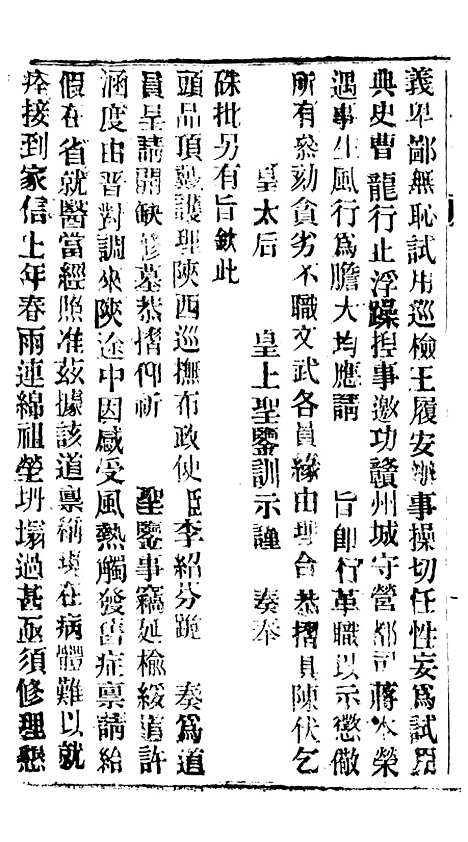 義卑鄙無恥試用巡檢王履安辦事操切任性妄為試用
典史曹 龍行止浮躁揑事邀功贛州城守營都司蔣本榮
遇事生風行為膽大均應請 旨卽行革職以示懲儆
所有叅劾貪劣不職文武各員緣由理合恭摺具陳伏乞
皇太后 皇上聖鑒訓示謹 奏奉
硃批另有旨欽此
頭品頂戴護理陝西巡撫布政使臣李紹芬跪 奏為道
員呈請開缺修墓恭摺仰祈 聖鑒事竊延榆綏道許
涵度由晋對調來陝途中因感受風熱觸發舊症禀請給
假在省就醫當經照准茲據該道禀稱現在病體難以就
痊接到家信上年春雨連綿祖塋坍塌過甚亟須修理懇